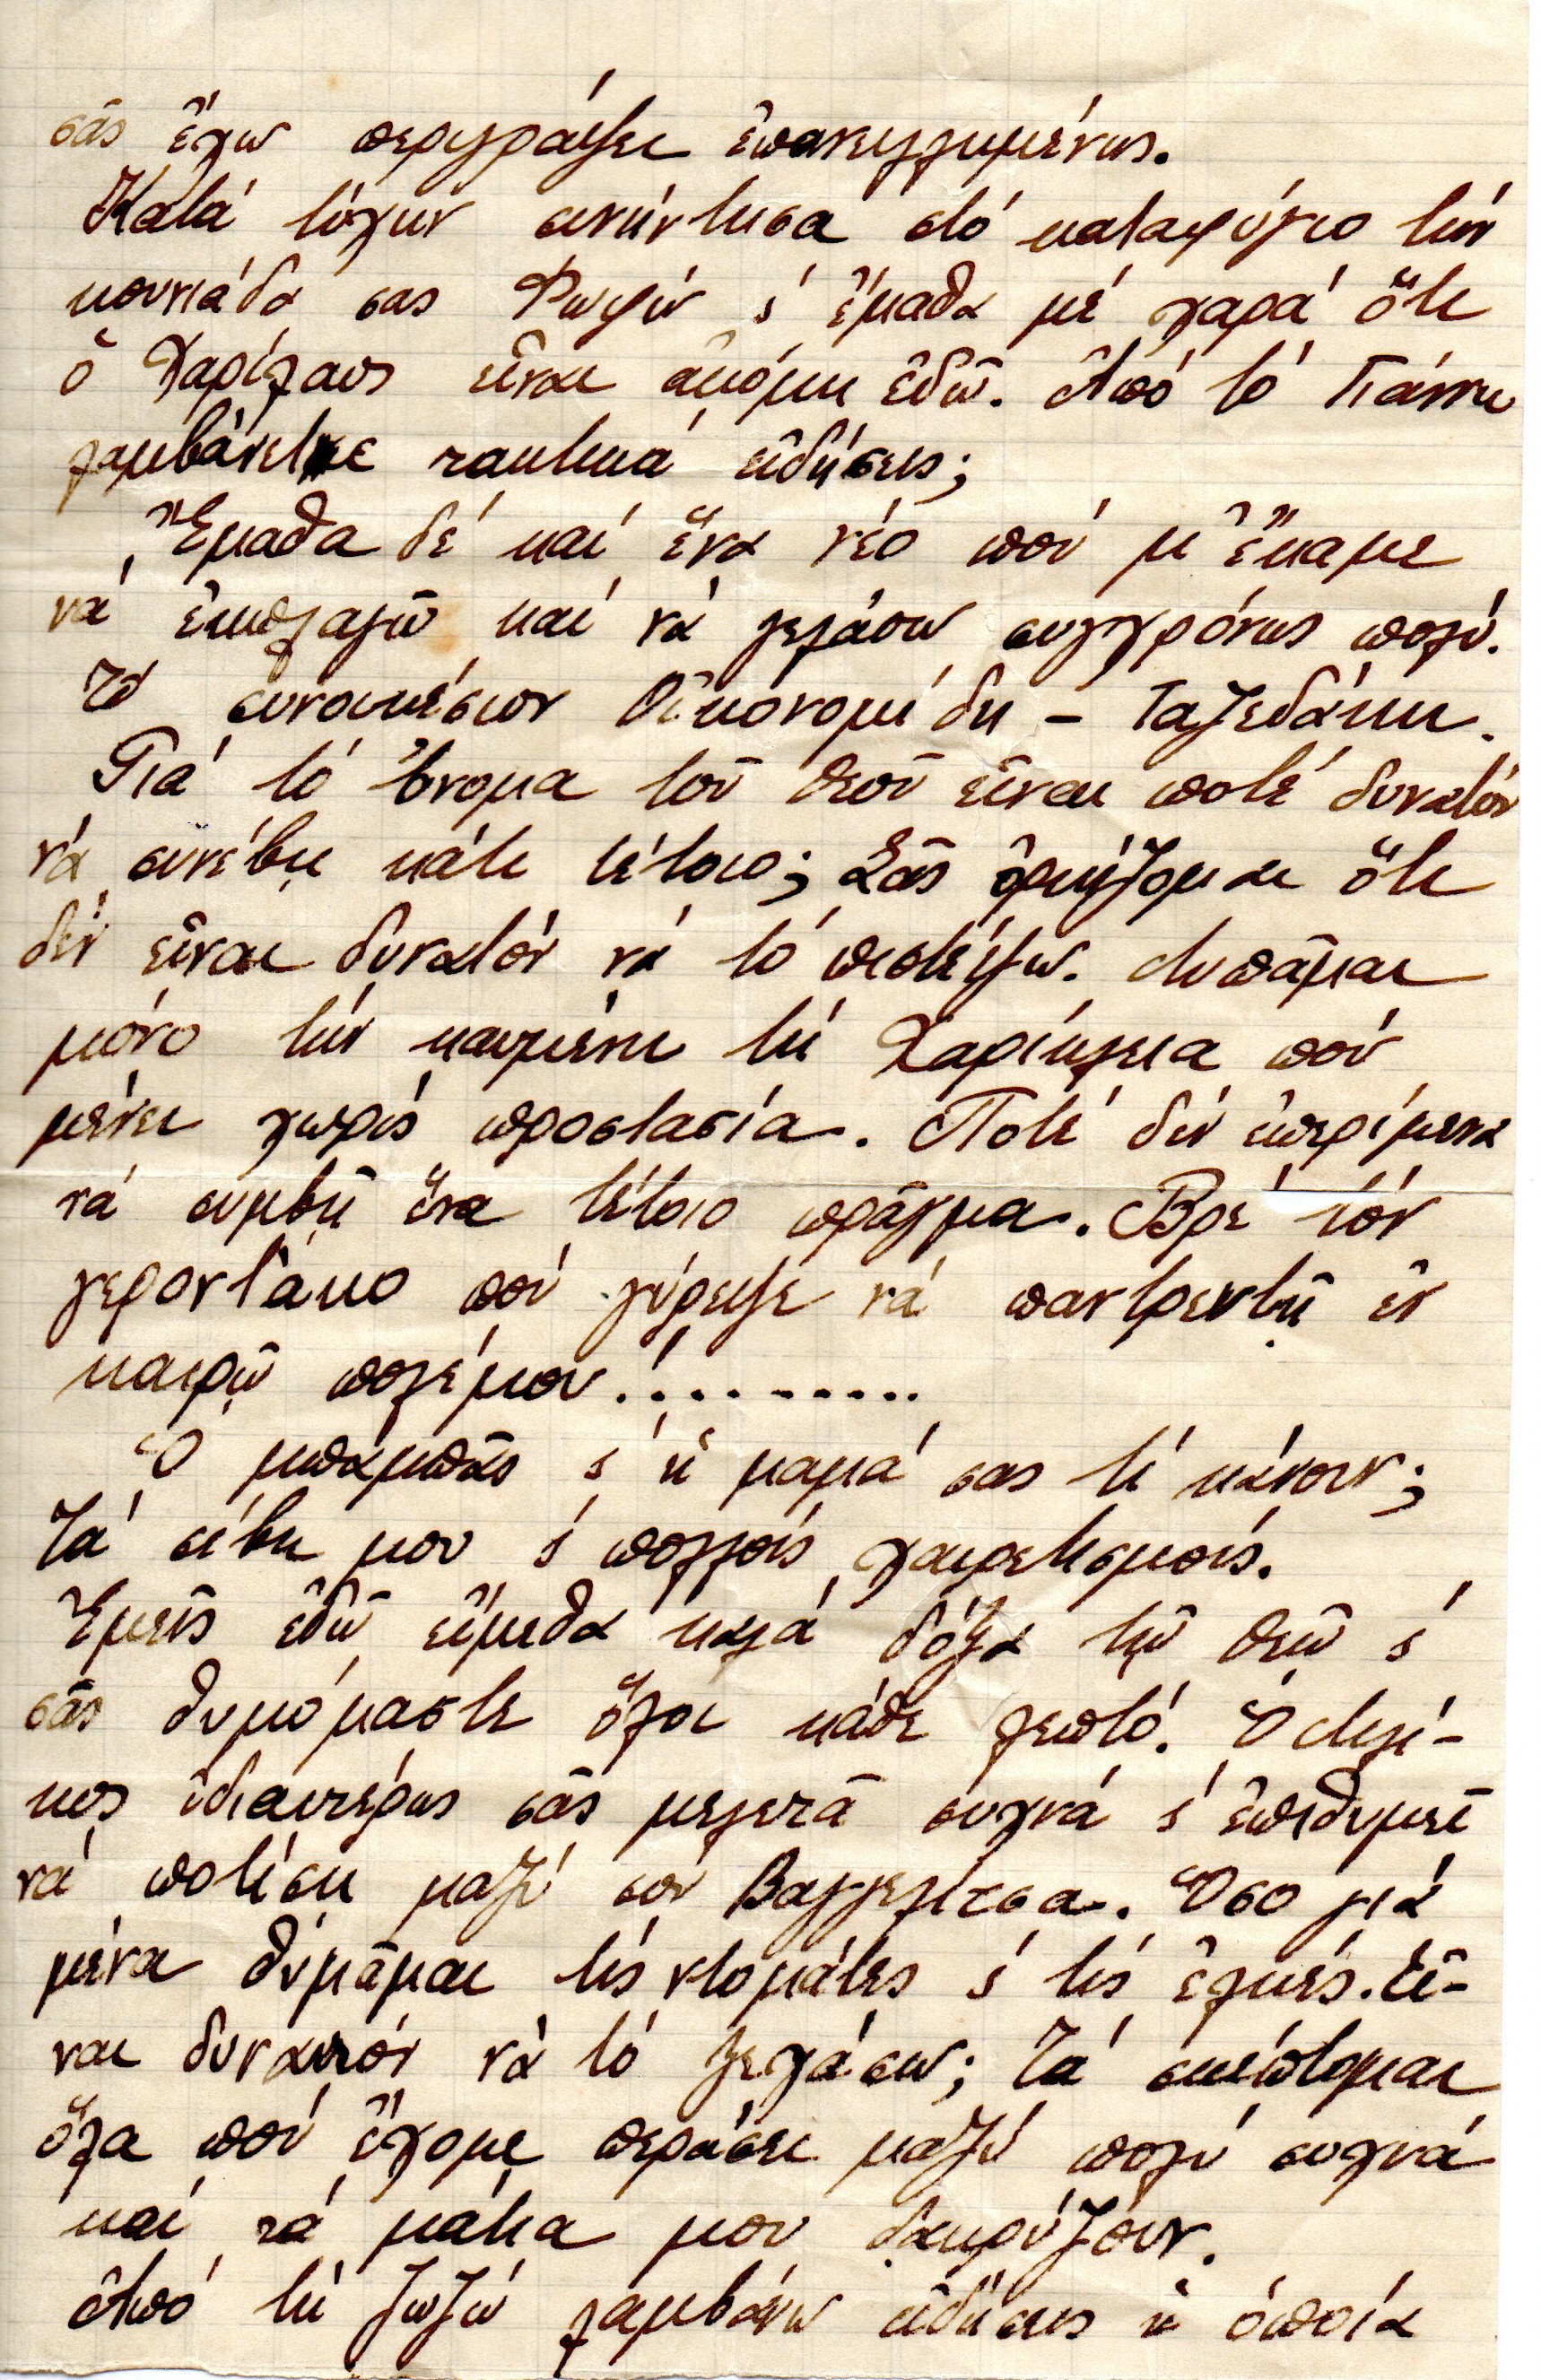 σᾶς ἔχω περιγράψει ἐπανειλημμένως.
Κατά τύχην συνήντησα στό καταφύγιο τήν
κουνιάδα σας Φωφών ἐ ἔμαθα μέ χαρά ὅτι
ὁ Χαρίλαος εἶναι ἀκόμη ἐδῶ. Ἀπό τό Γιάννη
λαμβάνετε τακτικά εἰδήσεις;
Ἔμαθα δέ καί ἕνα νέο πού μ' ἔκαμε
νά ἐκπλαγῶ καί νά γελάσω συγχρόνως πολύ.
Τό συνοικέσιον Οἰκονομίδη - Ταζεδάκη.
Γιά τό ὄνομα τοῦ Θεοῦ εἶναι ποτέ δυνατόν
νά συνέβη κάτι τέτοιο; Σᾶς ὁρκίζομαι ὅτι
δέν εἶναι δυνατόν νά τό πιστέψω. Λυπᾶμαι
μόνο τήν καημένη τή Χαρίκλεια πού
μένει χωρίς προστασία. Ποτέ δέν ἐπερίμενα
νά συμβῆ ἕνα τέτοιο πρᾶγμα. Βρέ τόν
γεροντάκο πού γύρεψε νά παντρευτῆ ἐν
καιρῷ πολέμου!.........
Ὁ μπαμπᾶς ἐ ἡ μαμά σας τί κάνουν;
Τά σέβη μου ἐ πολλούς χαιρετισμούς.
Ἐμεῖς ἐδῶ εἴμεθα καλά δόξα τῷ Θεῷ ἐ
σᾶς θυμόμαστε ὅλοι κάθε λεπτό. Ὁ Λελέ-
κος ἰδιαιτέρως σᾶς μελετᾶ συχνά ἐ ἐπιθυμεῖ
νά ποτίση μαζύ σού Βαγγελίτσα. Ὅσο γιά
μένα θυμᾶμαι τίς ντομάτες ἐ τίς ἐλιές. Εἶ-
ναι δυνατόν νά τό ξεχάσω; Τά σκέπτομαι
ὅλα πού ἔχομε περάσει μαζύ πολύ συχνά
καί τά μάτια μου δακρύζουν.
Ἀπό τή Ζωζώ λαμβάνω εἰδήσεις ἡ ὁποία